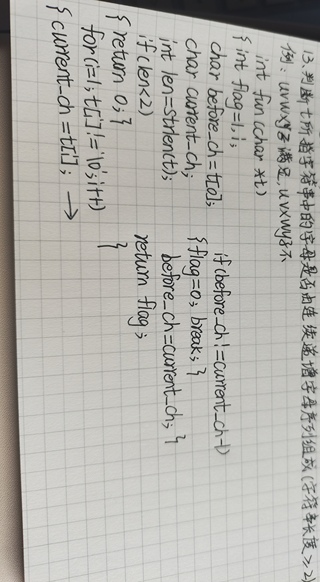 13.判断t所指字符串中的字母是否由连续递增字母序列组成(字符串长度≥2)
例:uvwxyz满足,uvxwyz不
int fun(char *t)
{ int flag=1,i;
char before_ch=t[0];
char current_ch;
int len=strlen(t);
if(len<2)
{ return 0; }
for(i=1;t[i]!='\0';i++)
{ current_ch=t[i]; →
if(before_ch!=current_ch-1)
{flag=0; break;}
before_ch=current_ch; }
return flag;
}